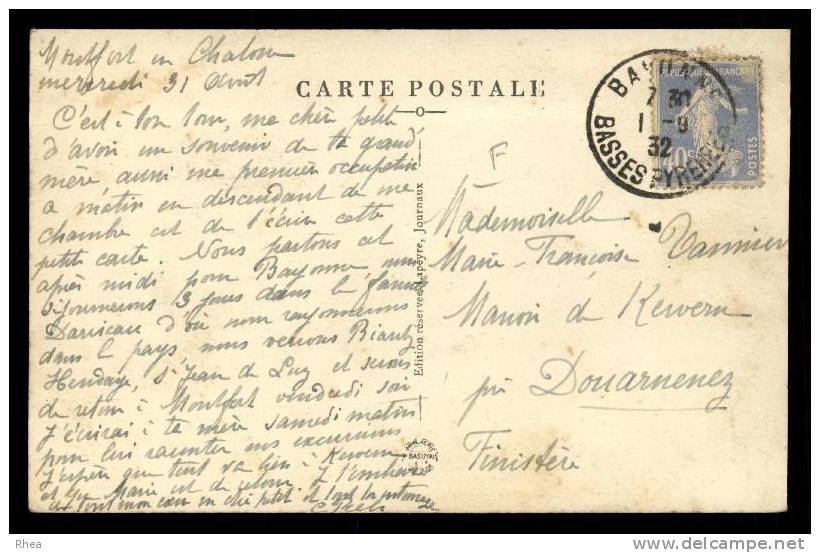 Montfort en Chalosse
mercredi 31 Août
CARTE POSTALE
C'est à ton tour, ma chère petite
d'avoir un souvenir de ta grand
mère, aussi ma première occupation
ce matin en descendant de ma
chambre est de t'écrire cette
petite carte. Nous partons cet
après midi pour Bayonne, nous
séjournerons 3 jours dans la famille
Darricau d'où nous rayonnerons
dans le pays nous verrons Biarritz
Hendaye, St Jean de Luz et serons
de retour à Montfort vendredi soir
J'écrirai à ta mère samedi matin
pour lui raconter nos excursions
J'espère que tout va bien à Kervern
et que Marie est de retour. Je t'embrasse
de tout mon cœur ma chère petite et
Edition réservée Lapeyre, Journaux
F
BASSES PYRENEES
7 30
1 - 9
32
REPUBLIQUE FRANÇAISE
40c
POSTES
Mademoiselle
Marie-Françoise Vannier
Manoir de Kervern
près Douarnenez
Finistère
Rhea
delcampe.net